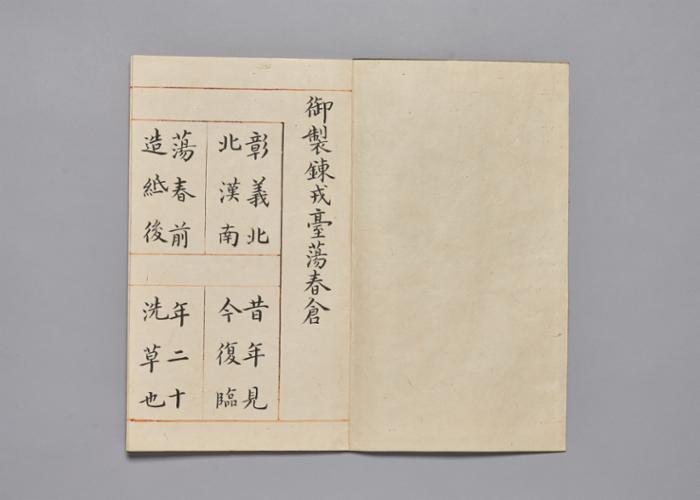 御製鍊戎臺蕩春倉
彰義北
北漢南
蕩春前
造紙後
昔年見
今復臨
年二十
洗草也